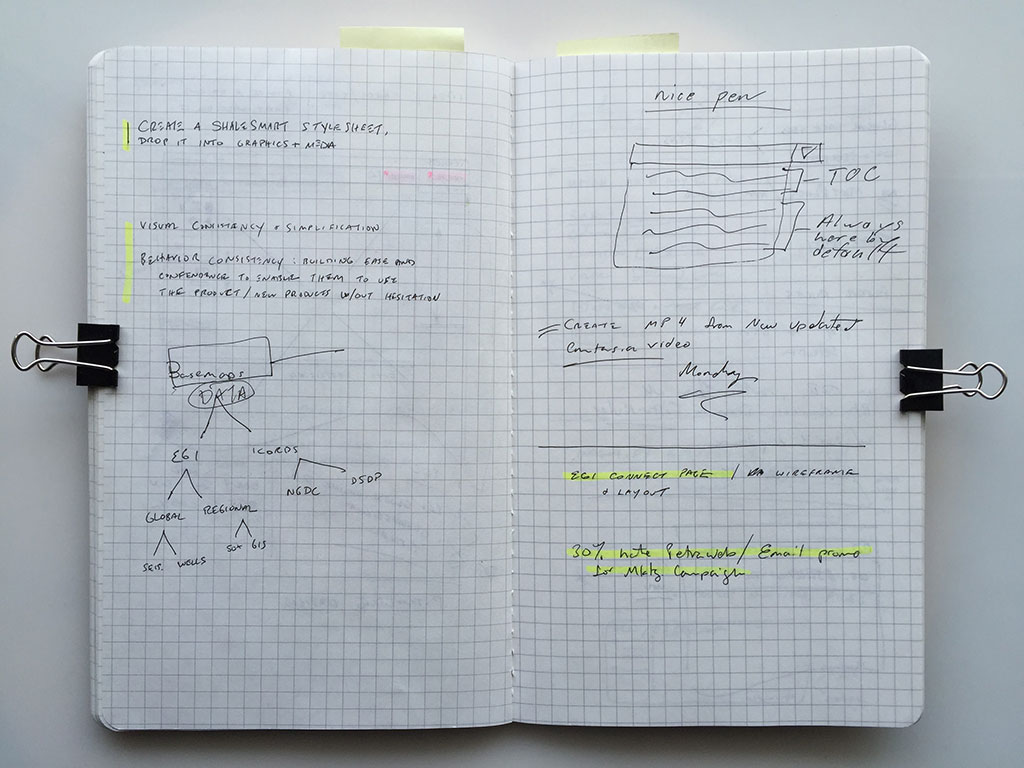 CREATE A SHALESMART STYLESHEET,
DROP IT INTO GRAPHICS + MEDIA
VISUAL CONSISTENCY + SIMPLIFICATION
BEHAVIOR CONSISTENCY: BUILDING EASE AND
CONFENDENCE TO ENABLE THEM TO USE
THE PRODUCT/NEW PRODUCTS W/OUT HESITATION
Basemaps
DATA
EGI
ICORDS
NGDC
DSDP
GLOBAL
REGIONAL
SEIS.
WELLS
GIS
nice pen
TOC
Always
here by
default
CREATE MP4 from New updated
Camtasia video
Monday
EGI CONNECT PAGE / WIREFRAME
+ LAYOUT
30% note Petraweb/Email promo
for Mktg Campaign